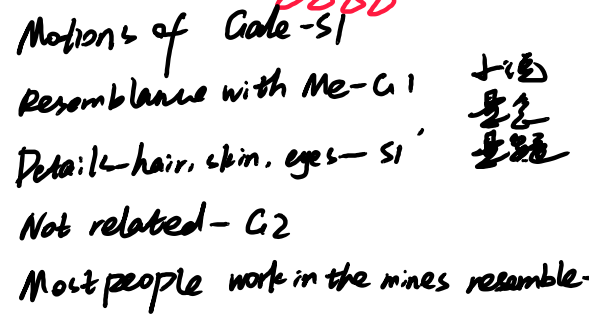 Motions of Gale-S1
Resemblance with Me-G1
Details-hair, skin, eyes-S1'
Not related-G2
Most people work in the mines resemble-